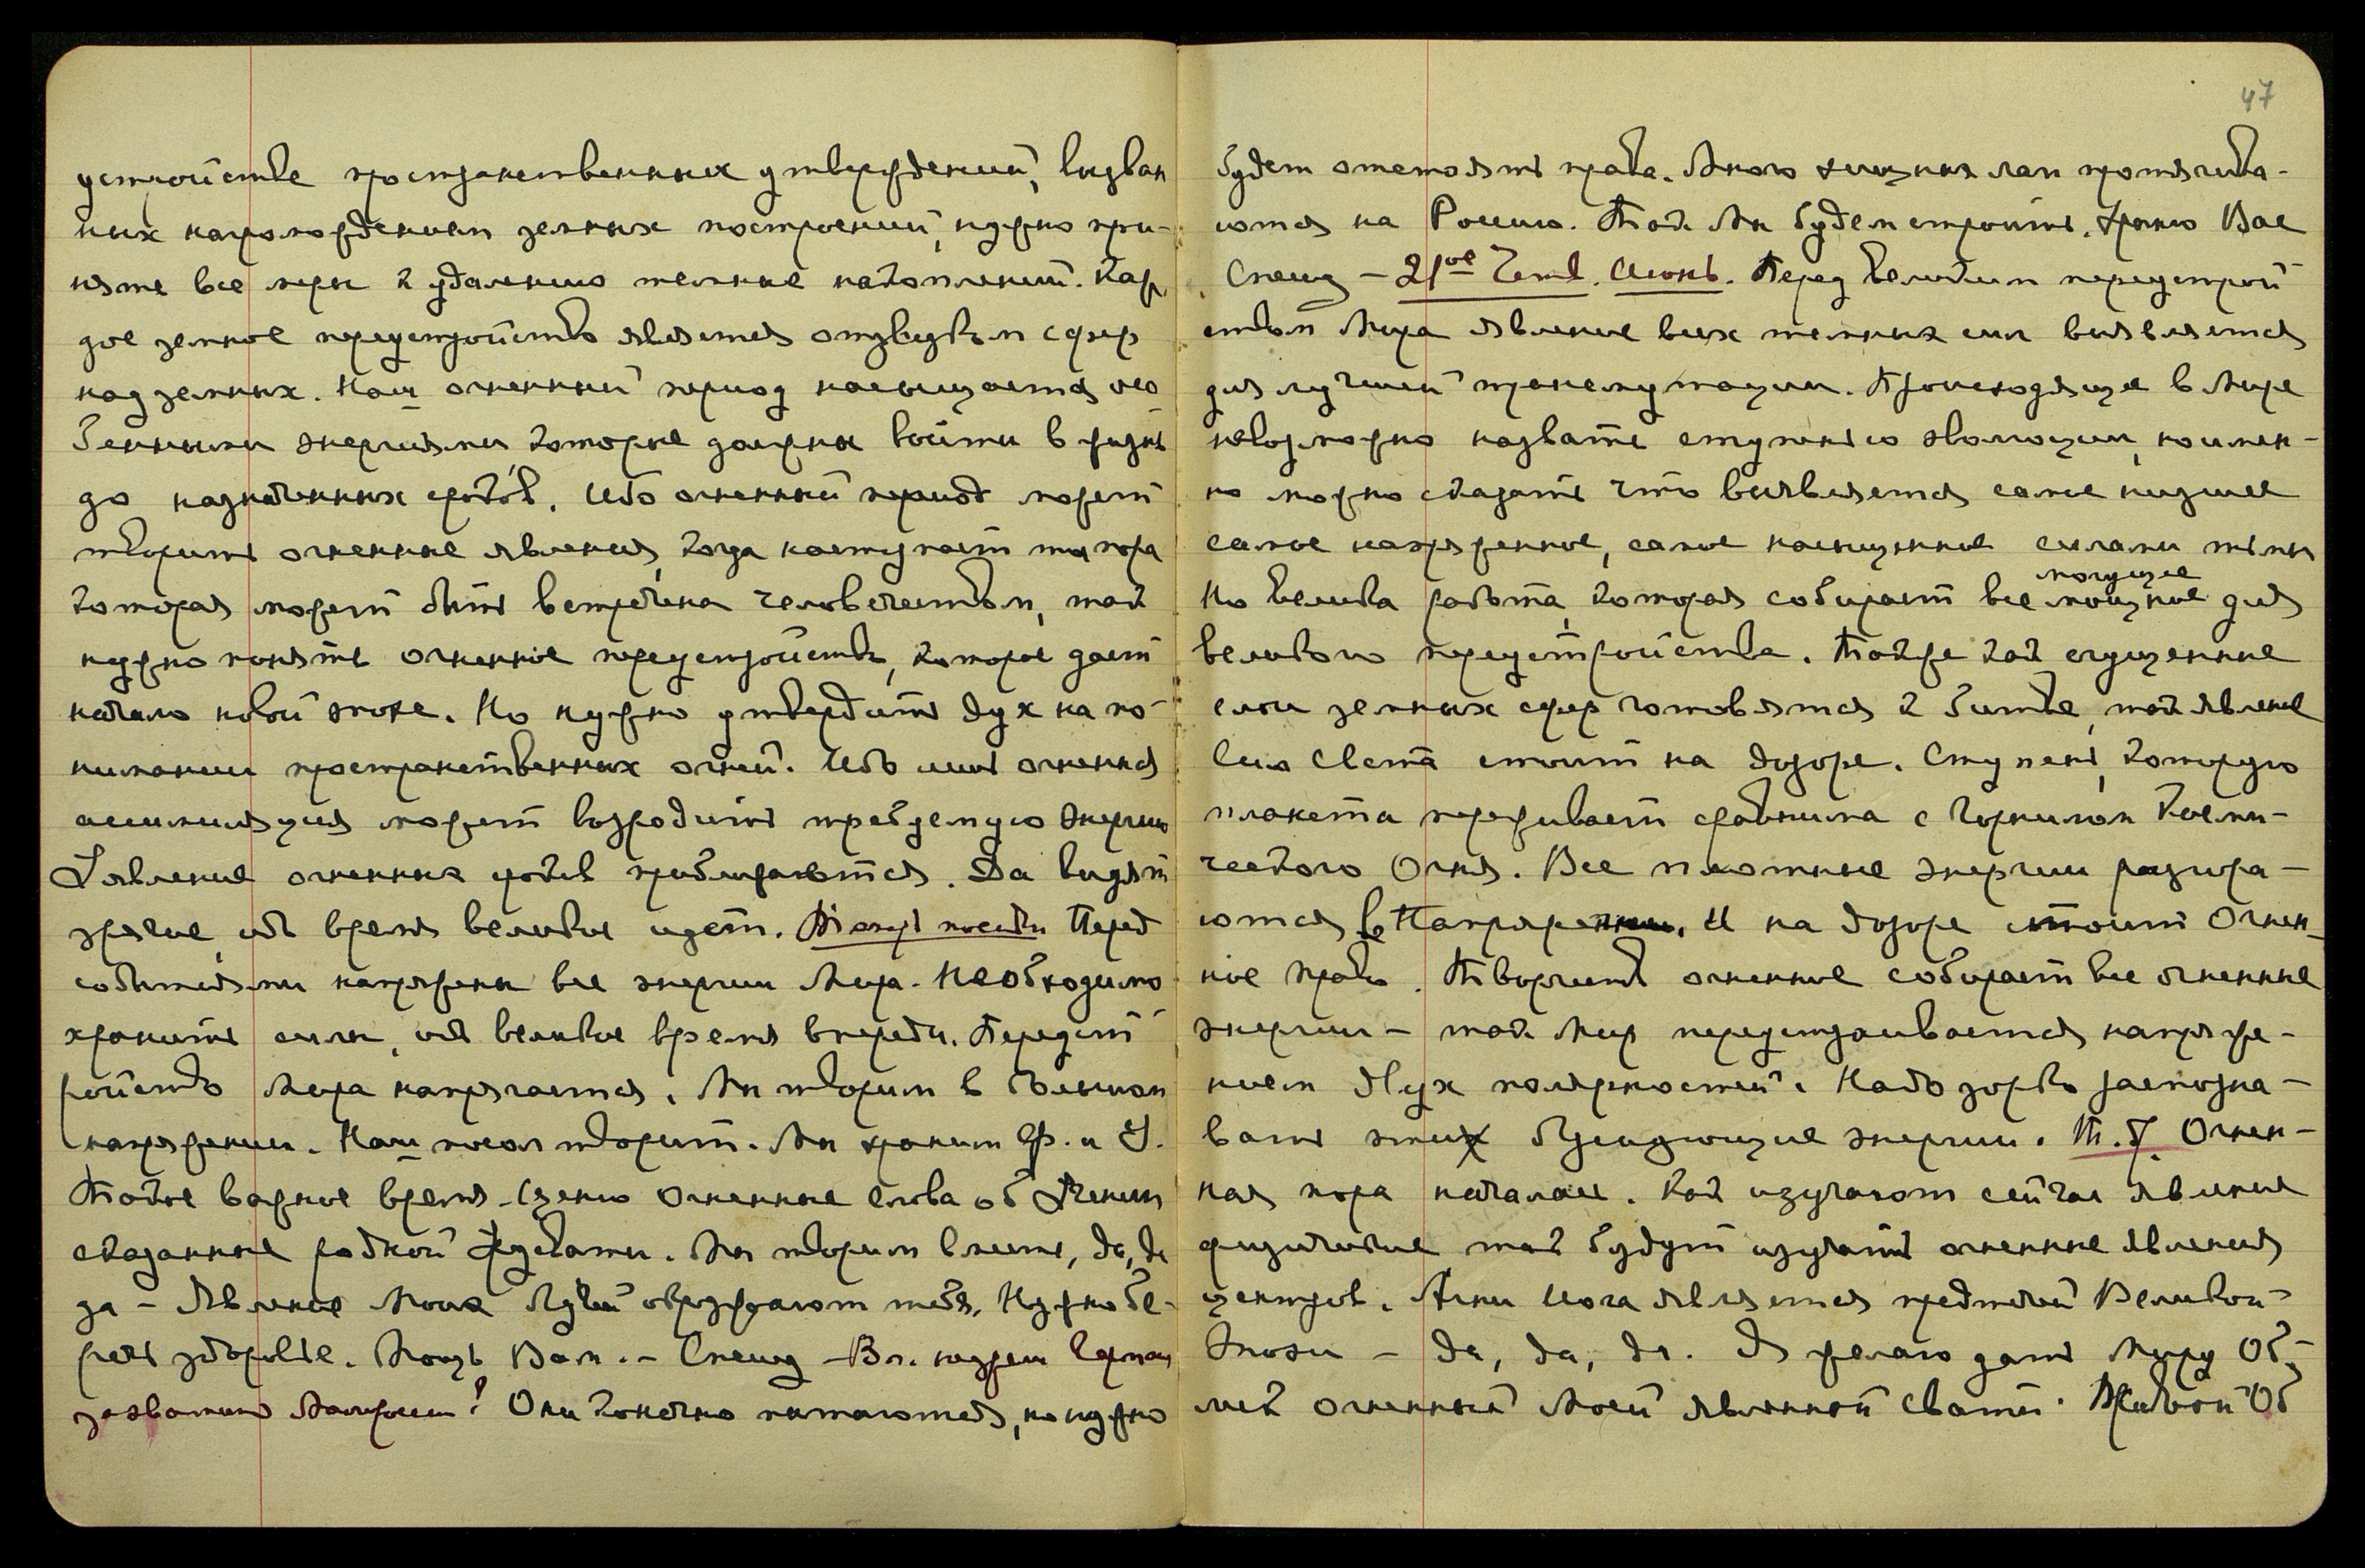 устройстве пространственных утверждений, вызван
ных нагромождением земных построений, нужно при-
нять все меры к удалению темные накоплений. Каж
дое земное переустройство является отзвуком сфер
надземных. Наш огненный период насыщается осо
бенными энергиями которые должны войти в жизнь
до назначенных сроков. Ибо огненный период может
творить огненные явления, когда наступает та пора
которая может быть встречена человечеством, так
нужно понять огненное переустройство, которое дает
начало новой эпохе. Но нужно утвердить дух на по-
нимании пространственных огней. Ибо лишь огненная
ассимиляция может возродить требуемую энергию
явление огненных сроков приближаются. Да видят
зрячие, ибо время великое идет. Перед
событиями напряжены все энергии Мира. Необходимо
хранить силы, ибо великое время впереди. Переуст
ройство Мира напрягается. Мы творим в большом
напряжении. Наш посол творит. Мы храним Ф. и У.
Такое важное время. Ценю огненные слова об Учении
сказанные родной Свати. Мы творим вместе, да, да
да - Явление Моих Лучей окружают тебя. Нужно бе-
речь здоровье. Мощь Вам. - Спешу - Вл. неужели Герман
захватит Манчжурию? Они конечно пытаются, но нужно
47
будет отстоять права. Много хищных лап протягива-
ются на Россию. Так Мы будем строить. Храню Вас
Спешу - 21ое Четв. Июнь. Перед великим переустрой
ством Мира явление всех темных сил выявляется
для лучшей трансмутации. Происходящее в Мире
невозможно назвать ступенью эволюции, но имен-
но можно сказать что выявляется самое низшее
самое напряженное, самое насыщенное силами тьмы
Но велика работа, которая собирает все мощное для
могущее
великого переустройства. Также как сгущенные
слои земных сфер готовятся к битве, так явление
сил Света стоит на дозоре. Ступень, которую
планета переживает сравнима с Горнилом Косми-
ческого Огня. Все плотные энергии разгора-
ются в Напряжении. И на дозоре стоит Огнен-
ное право. Творчество огненное собирает все огненные
энергии - так Мир переустраивается напряже-
нием двух полярностей. Надо зорко распозна-
вать этих бушующие энергии. Огнен-
ная пора началась. Как изучают сейчас явления
физические, так будут изучать огненные явления
центров. Агни Йога является предтечей Великой
Эпохи - да, да, да. Я желаю дать Миру Об-
лик огненный Моей явленной Свати. Живой Об